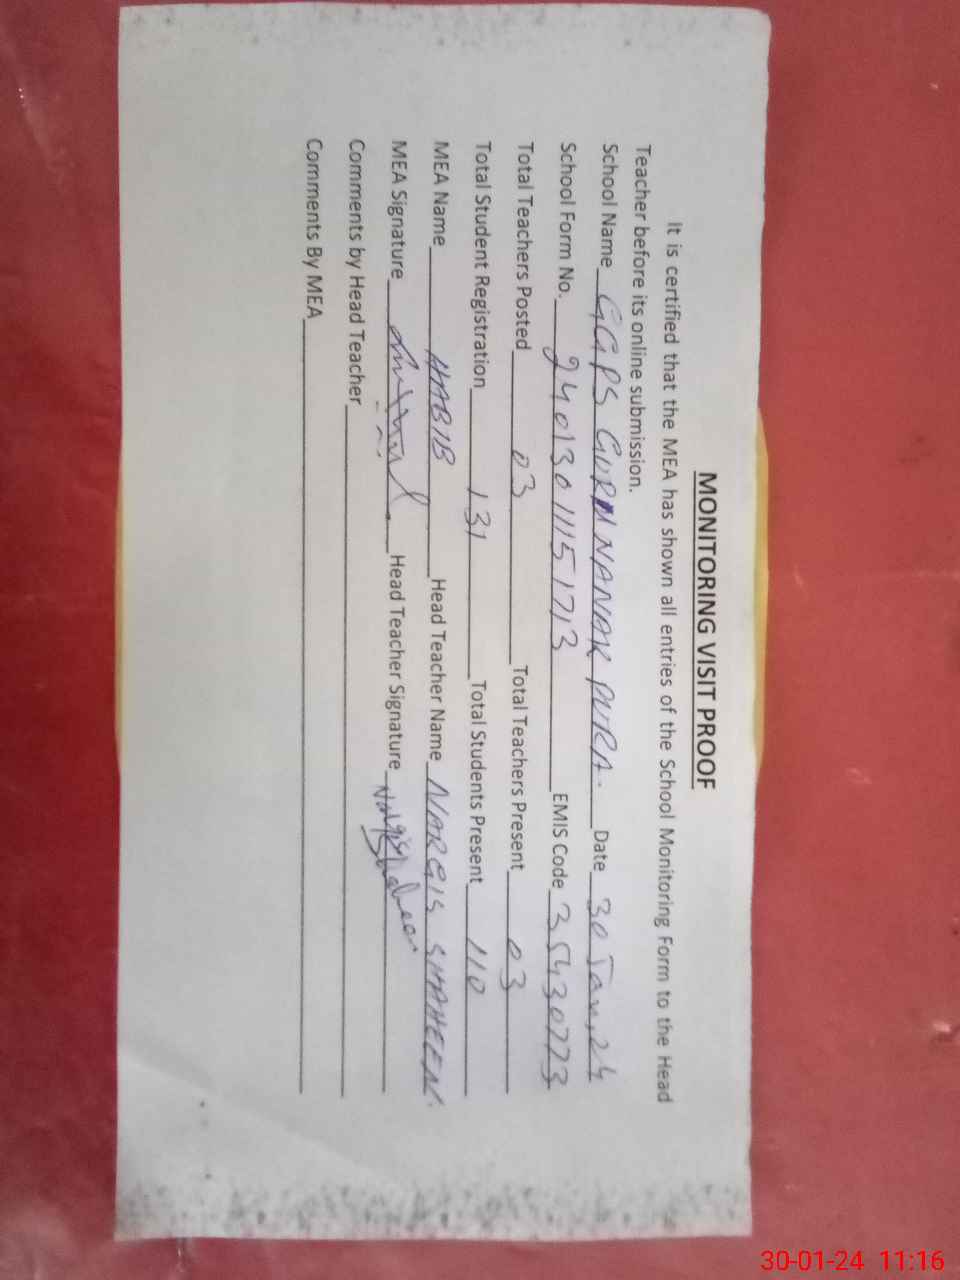 MONITORING VISIT PROOF
It is certified that the MEA has shown all entries of the School Monitoring Form to the Head
Teacher before its online submission.
School Name GGPS GURU NANAK PURA. Date 30 Jan, 24
School Form No. 24013011151713 EMIS Code 35430773
Total Teachers Posted 03 Total Teachers Present 03
Total Student Registration 131 Total Students Present 110
MEA Name HABIB Head Teacher Name NARGIS SHAHEEN.
MEA Signature Head Teacher Signature Nargis Shaheen
Comments by Head Teacher
Comments By MEA
30-01-24 11:16